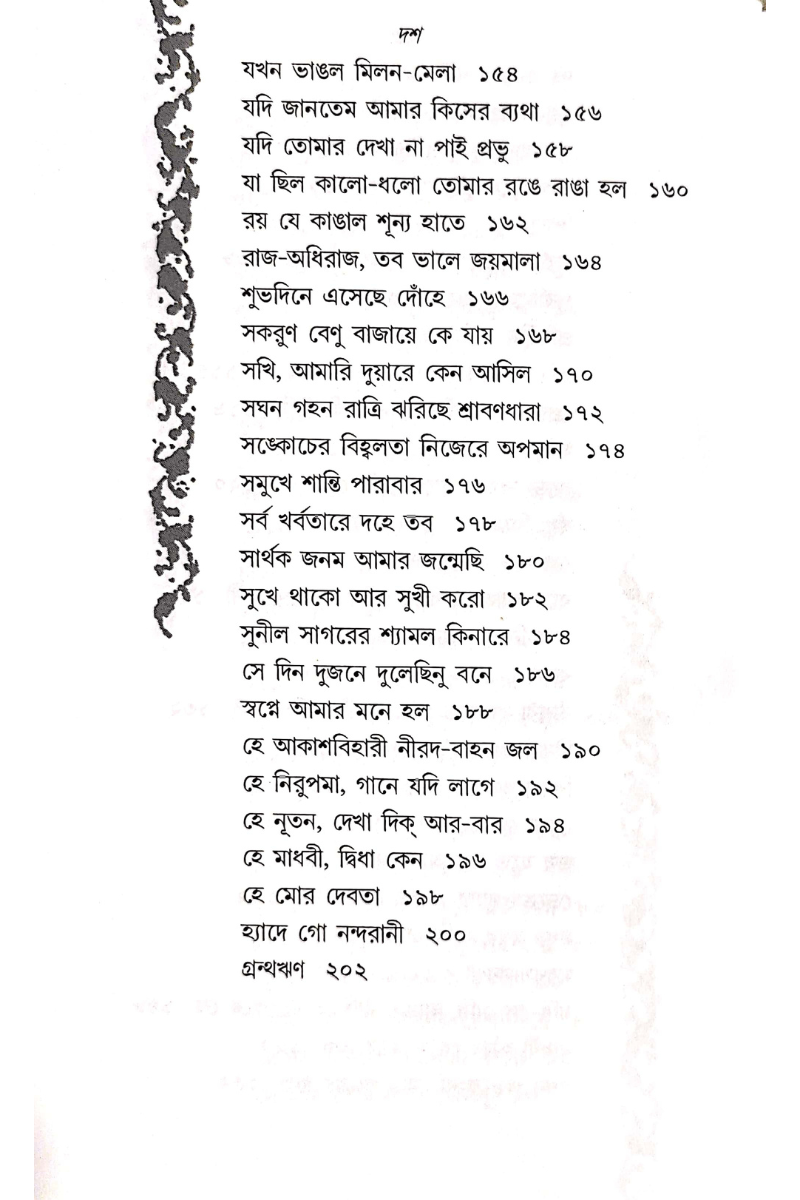 দশ
যখন ভাঙল মিলন-মেলা ১৫৪
যদি জানতেম আমার কিসের ব্যথা ১৫৬
যদি তোমার দেখা না পাই প্রভু ১৫৮
যা ছিল কালো-ধলো তোমার রঙে রাঙা হল ১৬০
রয় যে কাঙাল শূন্য হাতে ১৬২
রাজ-অধিরাজ, তব ভালে জয়মালা ১৬৪
শুভদিনে এসেছে দোঁহে ১৬৬
সকরুণ বেণু বাজায়ে কে যায় ১৬৮
সখি, আমারি দুয়ারে কেন আসিল ১৭০
সঘন গহন রাত্রি ঝরিছে শ্রাবণধারা ১৭২
সঙ্কোচের বিহ্বলতা নিজেরে অপমান ১৭৪
সমুখে শান্তি পারাবার ১৭৬
সর্ব খর্বতারে দহে তব ১৭৮
সার্থক জনম আমার জন্মেছি ১৮০
সুখে থাকো আর সুখী করো ১৮২
সুনীল সাগরের শ্যামল কিনারে ১৮৪
সে দিন দুজনে দুলেছিনু বনে ১৮৬
স্বপ্নে আমার মনে হল ১৮৮
হে আকাশবিহারী নীরদ-বাহন জল ১৯০
হে নিরুপমা, গানে যদি লাগে ১৯২
হে নূতন, দেখা দিক্ আর-বার ১৯৪
হে মাধবী, দ্বিধা কেন ১৯৬
হে মোর দেবতা ১৯৮
হ্যাদে গো নন্দরানী ২০০
গ্রন্থঋণ ২০২